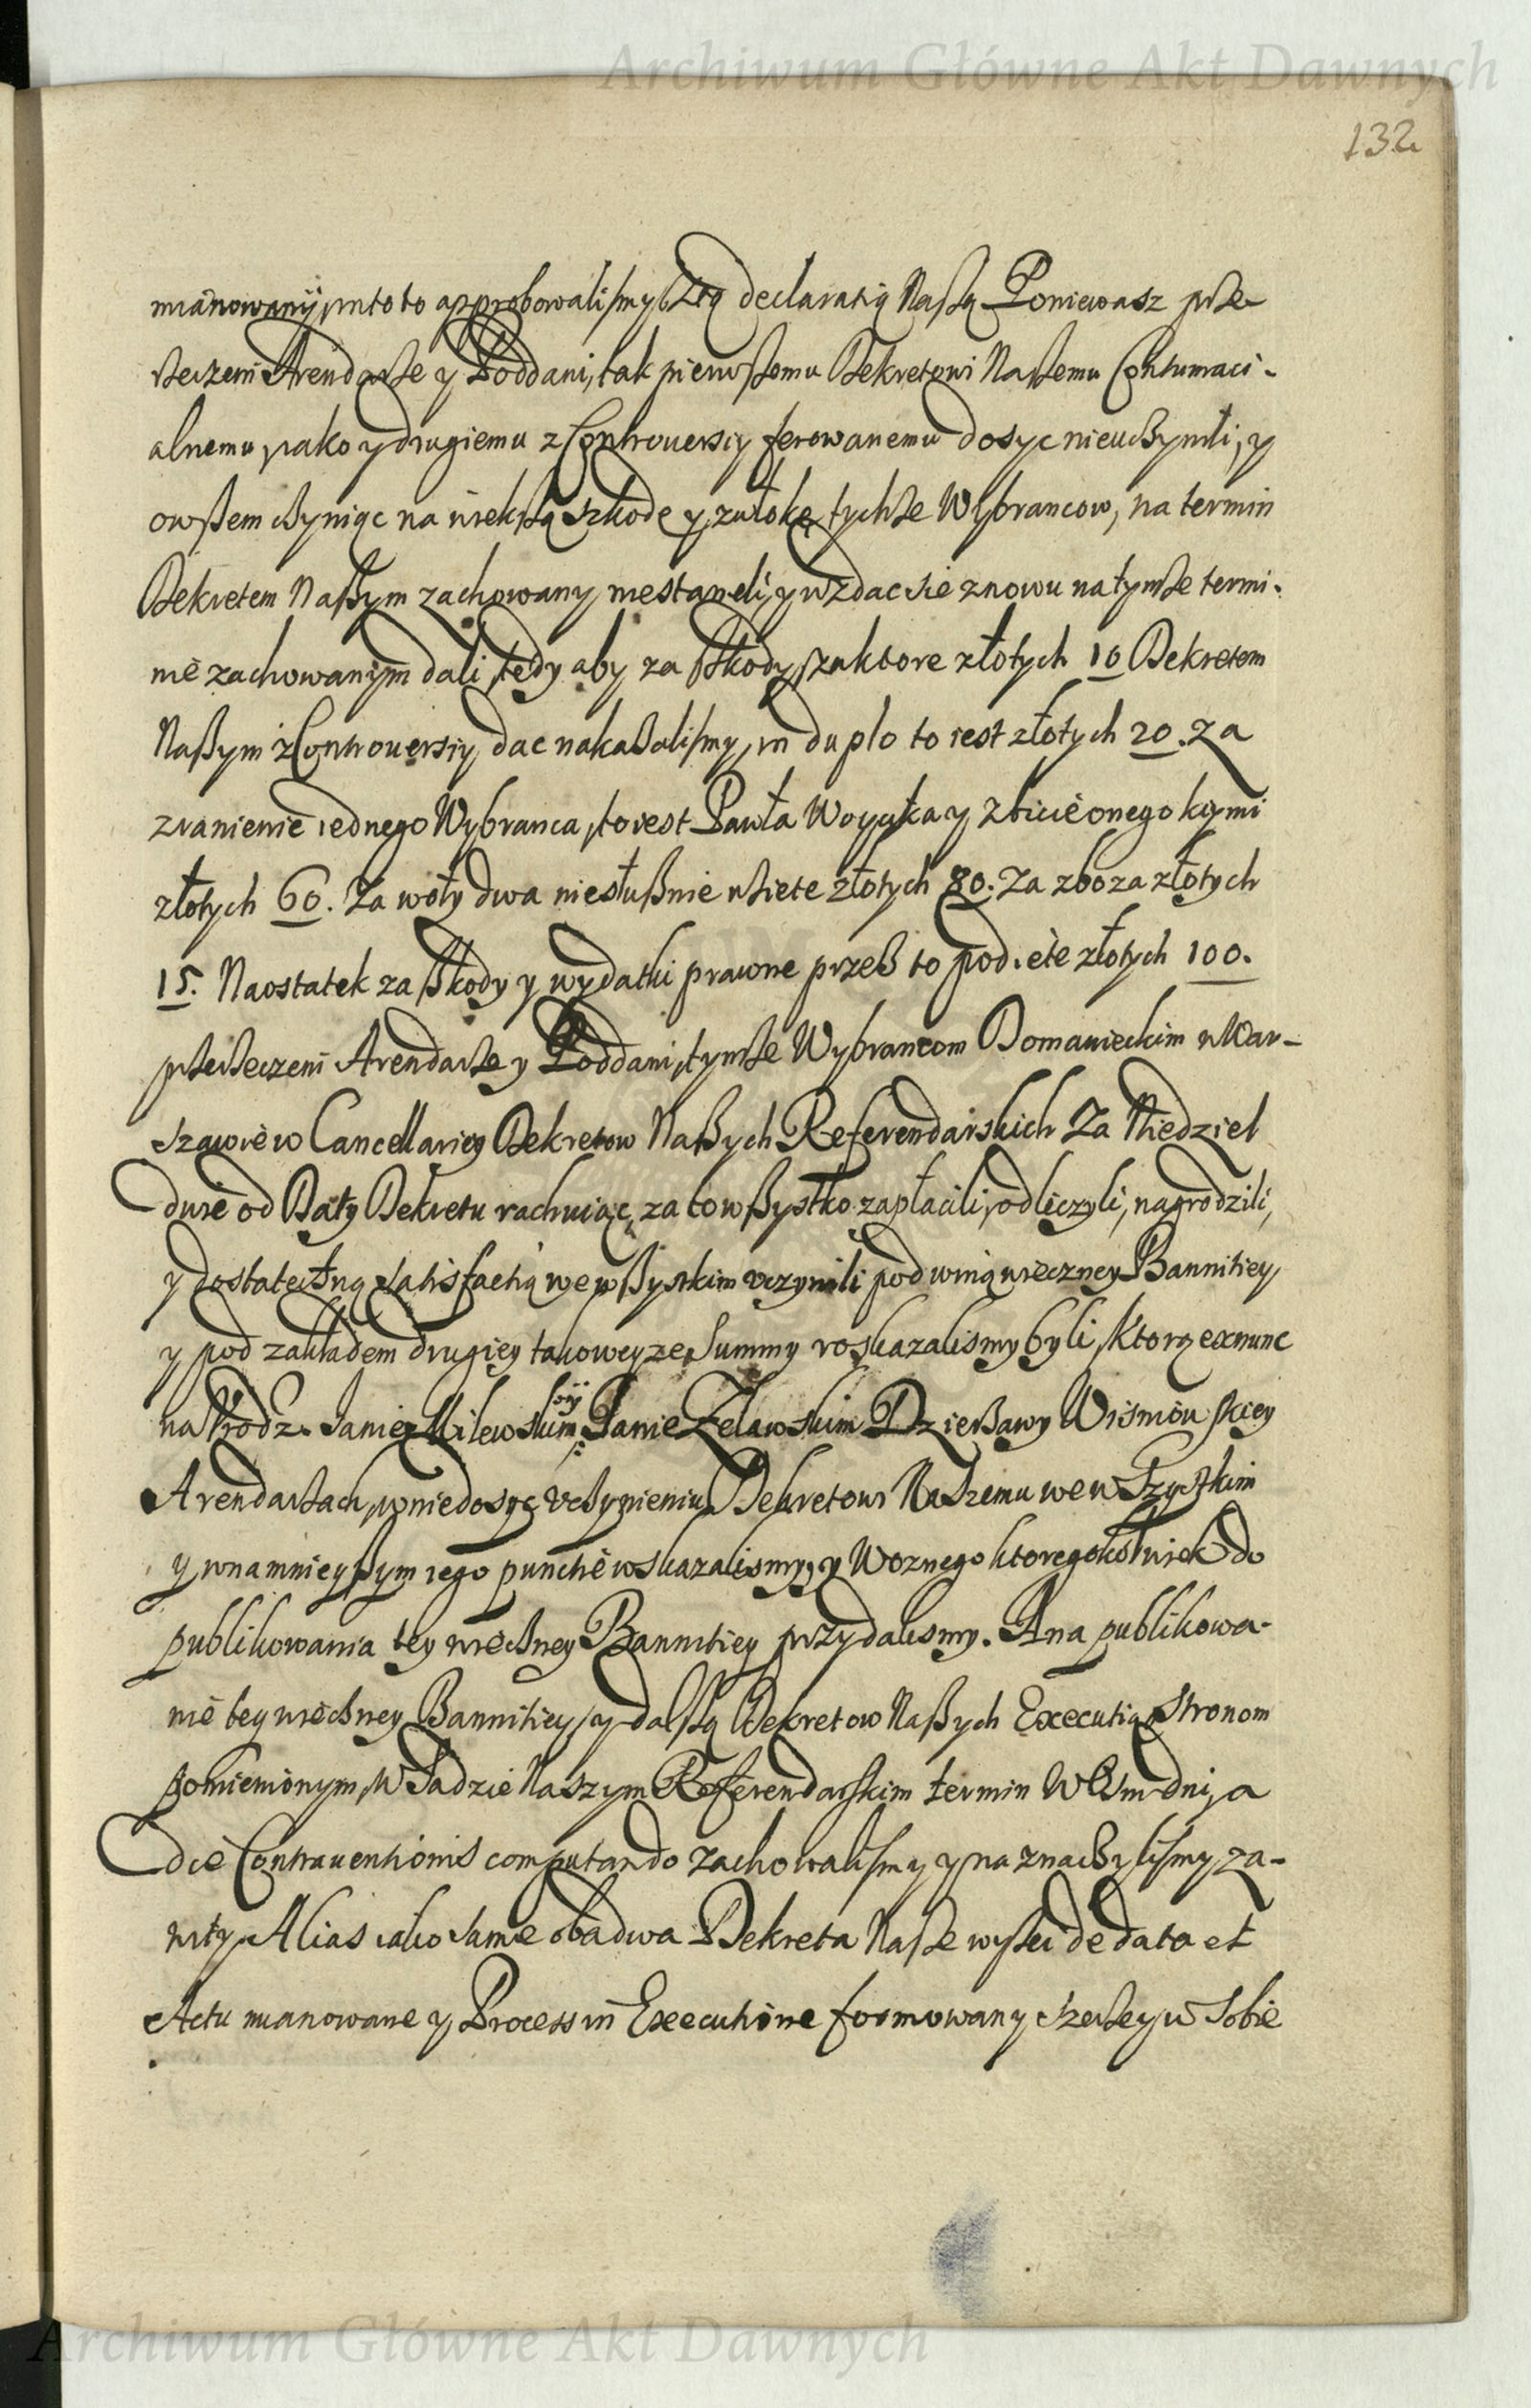 Archiwum Główne Akt Dawnych
132
mianowany, in toto approbowalismy, y tą declaratią Naszą Poniewasz prze-
rzeczeni Arendarze y Poddani, tak pierwszemu Dekretowi Naszemu Contumaci-
alnemu, iako y drugiemu z Controuersiy ferowanemu dosyc nieuczynili, y
owszem czyniąc na większą szkodę y zwłokę tychże Wybrancow, na termin
Dekretem Naszym zachowany niestaneli, y wzdac się znowu na tymże termi-
nie zachowanym dali, tedy aby za szkody, za ktore złotych 10 Dekretem
Naszym z Controuersiy dac nakazalismy, in duplo to iest złotych 20. Za
zranienie iednego Wybranca, to iest Pawła Woycika y zbicie onego kiymi
złotych 60. Za woły dwa niesłusznie wziete złotych 80. Za zboza złotych
15. Naostatek za szkody y wydatki prawne przez to podięte złotych 100.
przerzeczeni Arendarze y Poddani, tymże Wybrancom Domanieckim w War-
szawie w Cancellariey Dekretow Naszych Referendarskich Za Niedziel
dwie od Daty Dekretu rachuiąc, za to wszystko zapłacili, odliczyli, nagrodzili,
y dostateczną satisfactią we wszystkim uczynili pod winą wieczney Bannitiey,
y pod zakładem drugiey takoweyze Summy roskazalismy byli, Ktorą exnunc
na Urodz. Janie Milewskim, y Janie Zelawskim Dzierzawy Wismonskiey
Arendarzach, w niedosyc uczynieniu Dekretowi Naszemu we wszystkim
y w namnieyszym iego punctie wskazalismy, y Woznego ktoregokolwiek do
publikowania tey wieczney Bannitiey przydalismy. A na publikowa-
nie tey wieczney Bannitiey, y dalszą Dekretow Naszych Executią Stronom
pomienionym, W Sądzie Naszym Referendarskim termin W Osm dni, a
die Contrauentionis computando zachowalismy y naznaczylismy za-
wity. Alias iako same obadwa Dekreta Nasze wyszei de data et
Actu mianowane y Process in Executione formowany szerzey w sobie
Archiwum Główne Akt Dawnych